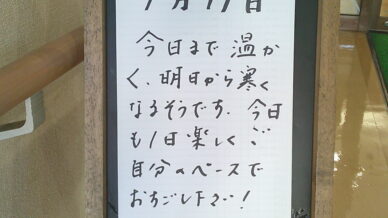 今日まで 温か
く、明日から寒く
なるそうです、今日
も1日楽しくご
自分のペースで
おすごし下さい!